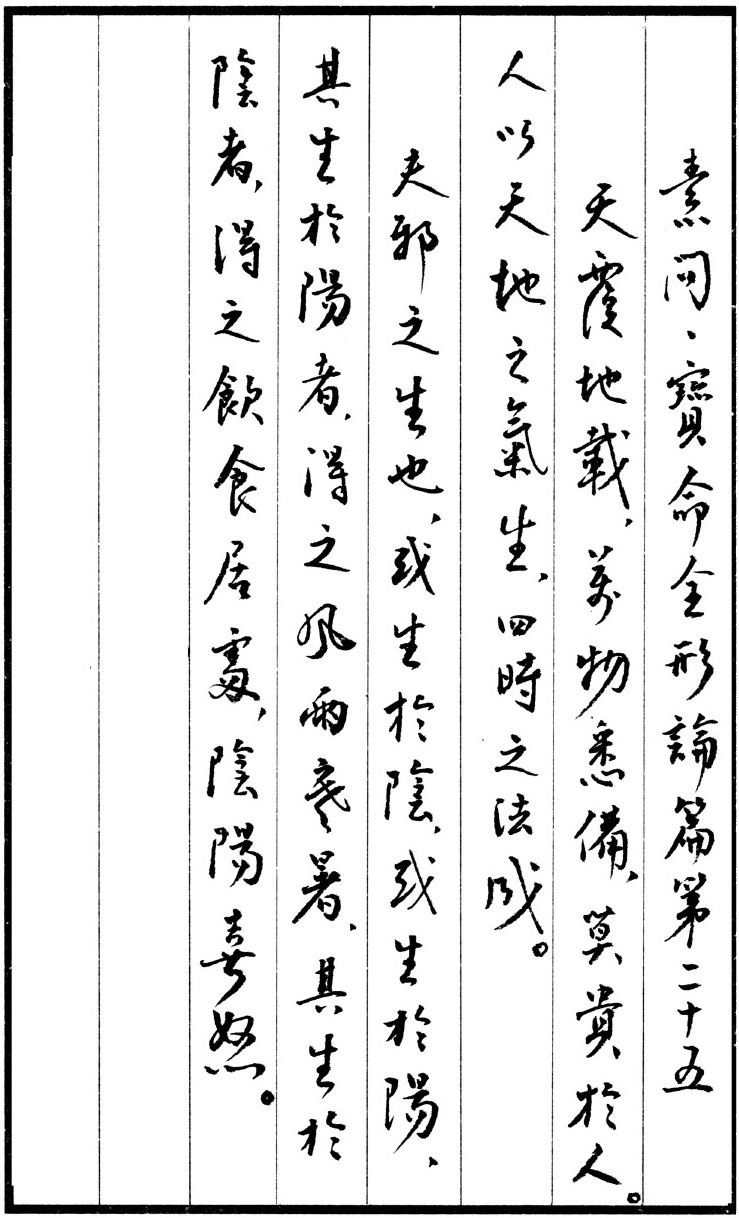 素問、寶命全形論篇第二十五
天覆地載、萬物悉備、莫貴於人。
人以天地之氣生、四時之法成。
夫邪之生也、或生於陰、或生於陽、
其生於陽者、得之風雨寒暑、其生於
陰者、得之飲食居處、陰陽喜怒。